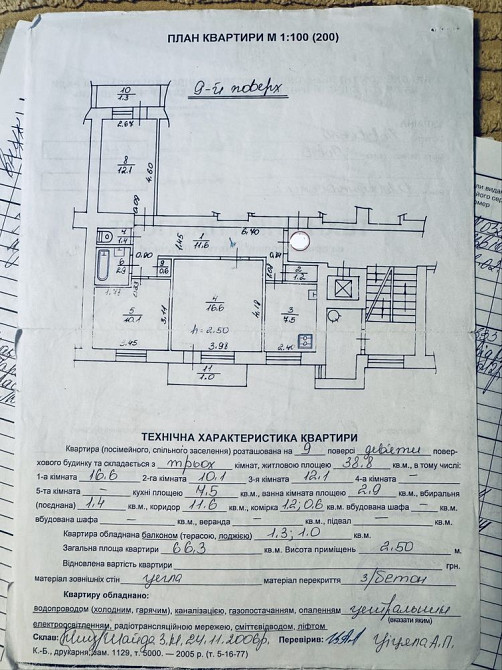 ПЛАН КВАРТИРИ М 1:100 (200)
9-й поверх
10
1.3
2.67
8
12.1
4.60
7
1.4
1
11.6
6.40
1.45
0.90
6
2.9
9
0.6
2
1.2
4
16.6
h=2.50
4.18
3.98
5
10.1
3.45
3
7.5
11
1.0
ТЕХНІЧНА ХАРАКТЕРИСТИКА КВАРТИРИ
Квартира (посімейного, спільного заселення) розташована на 9 поверсі дев'яти повер-
хового будинку та складається з трьох кімнат, житловою площею 38.8 кв.м., в тому числі:
1-а кімната 16.6 2-га кімната 10.1 3-я кімната 12.1 4-а кімната –
5-та кімната кухні площею 7.5 кв.м., ванна кімната площею 2.9 кв.м., вбиральня
(поєднана) 1.4 кв.м., коридор 11.6 кв.м., комірка 1.2; 0.6 кв.м. вбудована шафа –
вбудована шафа – кв.м., веранда – кв.м., підвал – кв.м.
Квартира обладнана балконом (терасою, лоджією) 1.3; 1.0 кв.м.
Загальна площа квартири 66.3 кв.м. Висота приміщень 2.50 м.
Відновлена вартість квартири грн.
матеріал зовнішніх стін цегла матеріал перекриття з/бетон
Квартиру обладнано:
водопроводом (холодним, гарячим), каналізацією, газопостачанням, опаленням центральним
(вказати яким)
електроосвітленням, радіотрансляційною мережею, сміттєвідводом, ліфтом
Склав: 24.11.2006р. Перевірив:
К.-Б., друкарня, дам. 1129, т. 5000. – 2005 р. (т. 5-16-77)